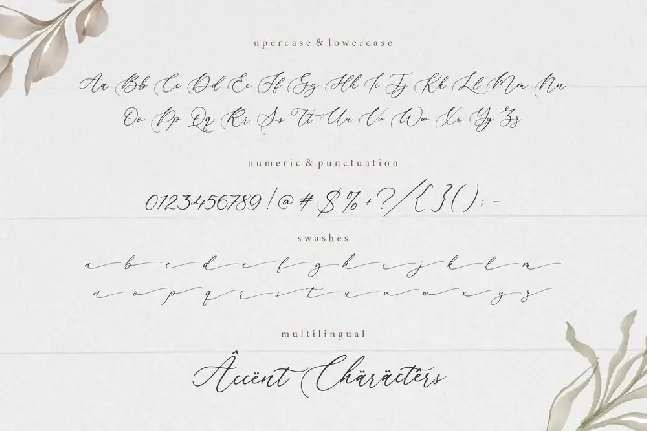 upercase & lowercase
Aa Bb Cc Dd Ee Ff Gg Hh Ii Jj Kk Ll Mm Nn
Oo Pp Qq Rr Ss Tt Uu Vv Ww Xx Yy Zz
numeric & punctuation
0123456789!@#$%+?/{}():-
swashes
a b c d e f g h i j k l m
n o p q r s t u v w x y z
multilingual
Âccënt Chäräctérs